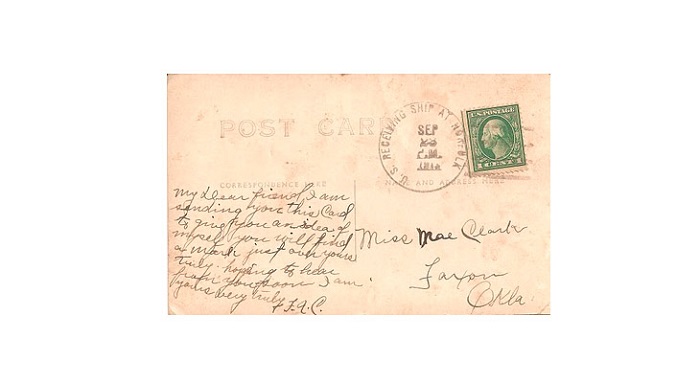 POST CARD
U.S. RECEIVING SHIP AT NORFOLK
SEP
P.M.
U.S. POSTAGE
1 CENT 1
CORRESPONDENCE HERE
NAME AND ADDRESS HERE
My Dear friend I am
sending you this Card
to give you an idea of
myself you will find
a mark just over yours
truly. hoping to hear
from you soon I am
yours very truly
F.A.C.
Miss Mae Clark
Faxon
Okla.